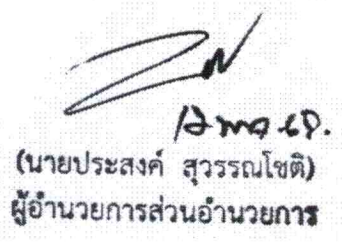 (นายประสงค์ สุวรรณโชติ)
ผู้อำนวยการส่วนอำนวยการ